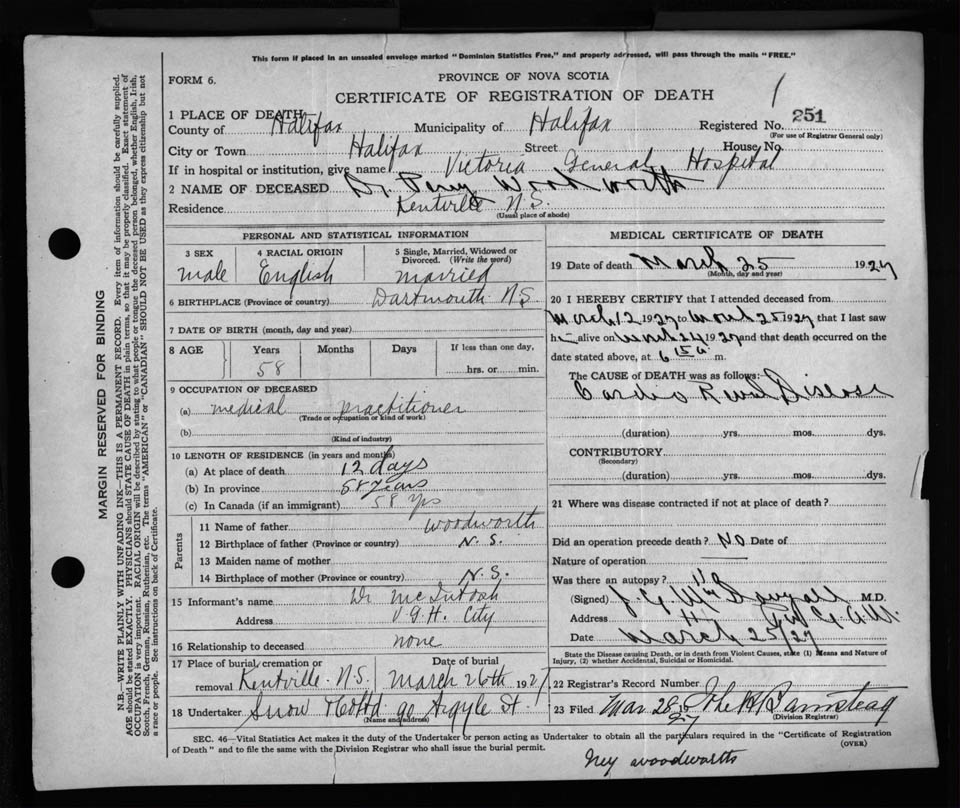 This form if placed in an unsealed envelope marked "Dominion Statistics Free," and properly addressed, will pass through the mails "FREE."
FORM 6.
PROVINCE OF NOVA SCOTIA
CERTIFICATE OF REGISTRATION OF DEATH
1
1 PLACE OF DEATH
County of Halifax Municipality of Halifax Registered No. 251
(For use of Registrar General only)
City or Town Halifax Street House No.
If in hospital or institution, give name Victoria General Hospital
2 NAME OF DECEASED Dr. Percy Woodworth
Residence Kentville N.S.
(Usual place of abode)
PERSONAL AND STATISTICAL INFORMATION
3 SEX 4 RACIAL ORIGIN 5 Single, Married, Widowed or Divorced. (Write the word)
male English married
6 BIRTHPLACE (Province or country) Dartmouth N.S.
7 DATE OF BIRTH (month, day and year)
8 AGE Years Months Days If less than one day,
58 hrs. or min.
9 OCCUPATION OF DECEASED
(a) medical practitioner
(Trade or occupation or kind of work)
(b)
(Kind of industry)
10 LENGTH OF RESIDENCE (in years and months)
(a) At place of death 12 days
(b) In province 58 years
(c) In Canada (if an immigrant) 58 yrs
Parents
11 Name of father Woodworth
12 Birthplace of father (Province or country) N.S.
13 Maiden name of mother
14 Birthplace of mother (Province or country) N.S.
15 Informant's name Dr McIntosh
Address V.G.H. City
16 Relationship to deceased none
17 Place of burial, cremation or removal Kentville N.S. Date of burial March 26th 1927
18 Undertaker Snow & Co Ltd 90 Argyle St.
(Name and address)
MEDICAL CERTIFICATE OF DEATH
19 Date of death March 25 1927
(Month, day and year)
20 I HEREBY CERTIFY that I attended deceased from
March 12 1927 to March 25 1927 that I last saw
h alive on March 24 1927 and that death occurred on the
date stated above, at 6 15 a. m.
The CAUSE of DEATH was as follows:
Cardio Renal Disease
(duration) yrs. mos. dys.
CONTRIBUTORY
(Secondary)
(duration) yrs. mos. dys.
21 Where was disease contracted if not at place of death?
Did an operation precede death? No Date of
Nature of operation
Was there an autopsy?
(Signed) M.D.
Address
Date March 25/27
State the Disease causing Death, or in death from Violent Causes, state (1) Means and Nature of Injury, (2) whether Accidental, Suicidal or Homicidal.
22 Registrar's Record Number
23 Filed Mar 28 27
(Division Registrar)
SEC. 46—Vital Statistics Act makes it the duty of the Undertaker or person acting as Undertaker to obtain all the particulars required in the "Certificate of Registration
of Death" and to file the same with the Division Registrar who shall issue the burial permit.
(OVER)
woodworth
MARGIN RESERVED FOR BINDING
N.B.—WRITE PLAINLY WITH UNFADING INK—THIS IS A PERMANENT RECORD. Every item of information should be carefully supplied.
AGE should be stated EXACTLY. PHYSICIANS should STATE CAUSE OF DEATH in plain terms, so that it may be properly classified. Exact statement of
OCCUPATION is very important. RACIAL ORIGIN will be described by stating to what people or tongue the deceased person belonged, whether English, Irish,
Scotch, French, German, Russian, Ruthenian, etc. The terms "AMERICAN" or "CANADIAN" SHOULD NOT BE USED as they express citizenship but not
a race or people. See instructions on back of Certificate.